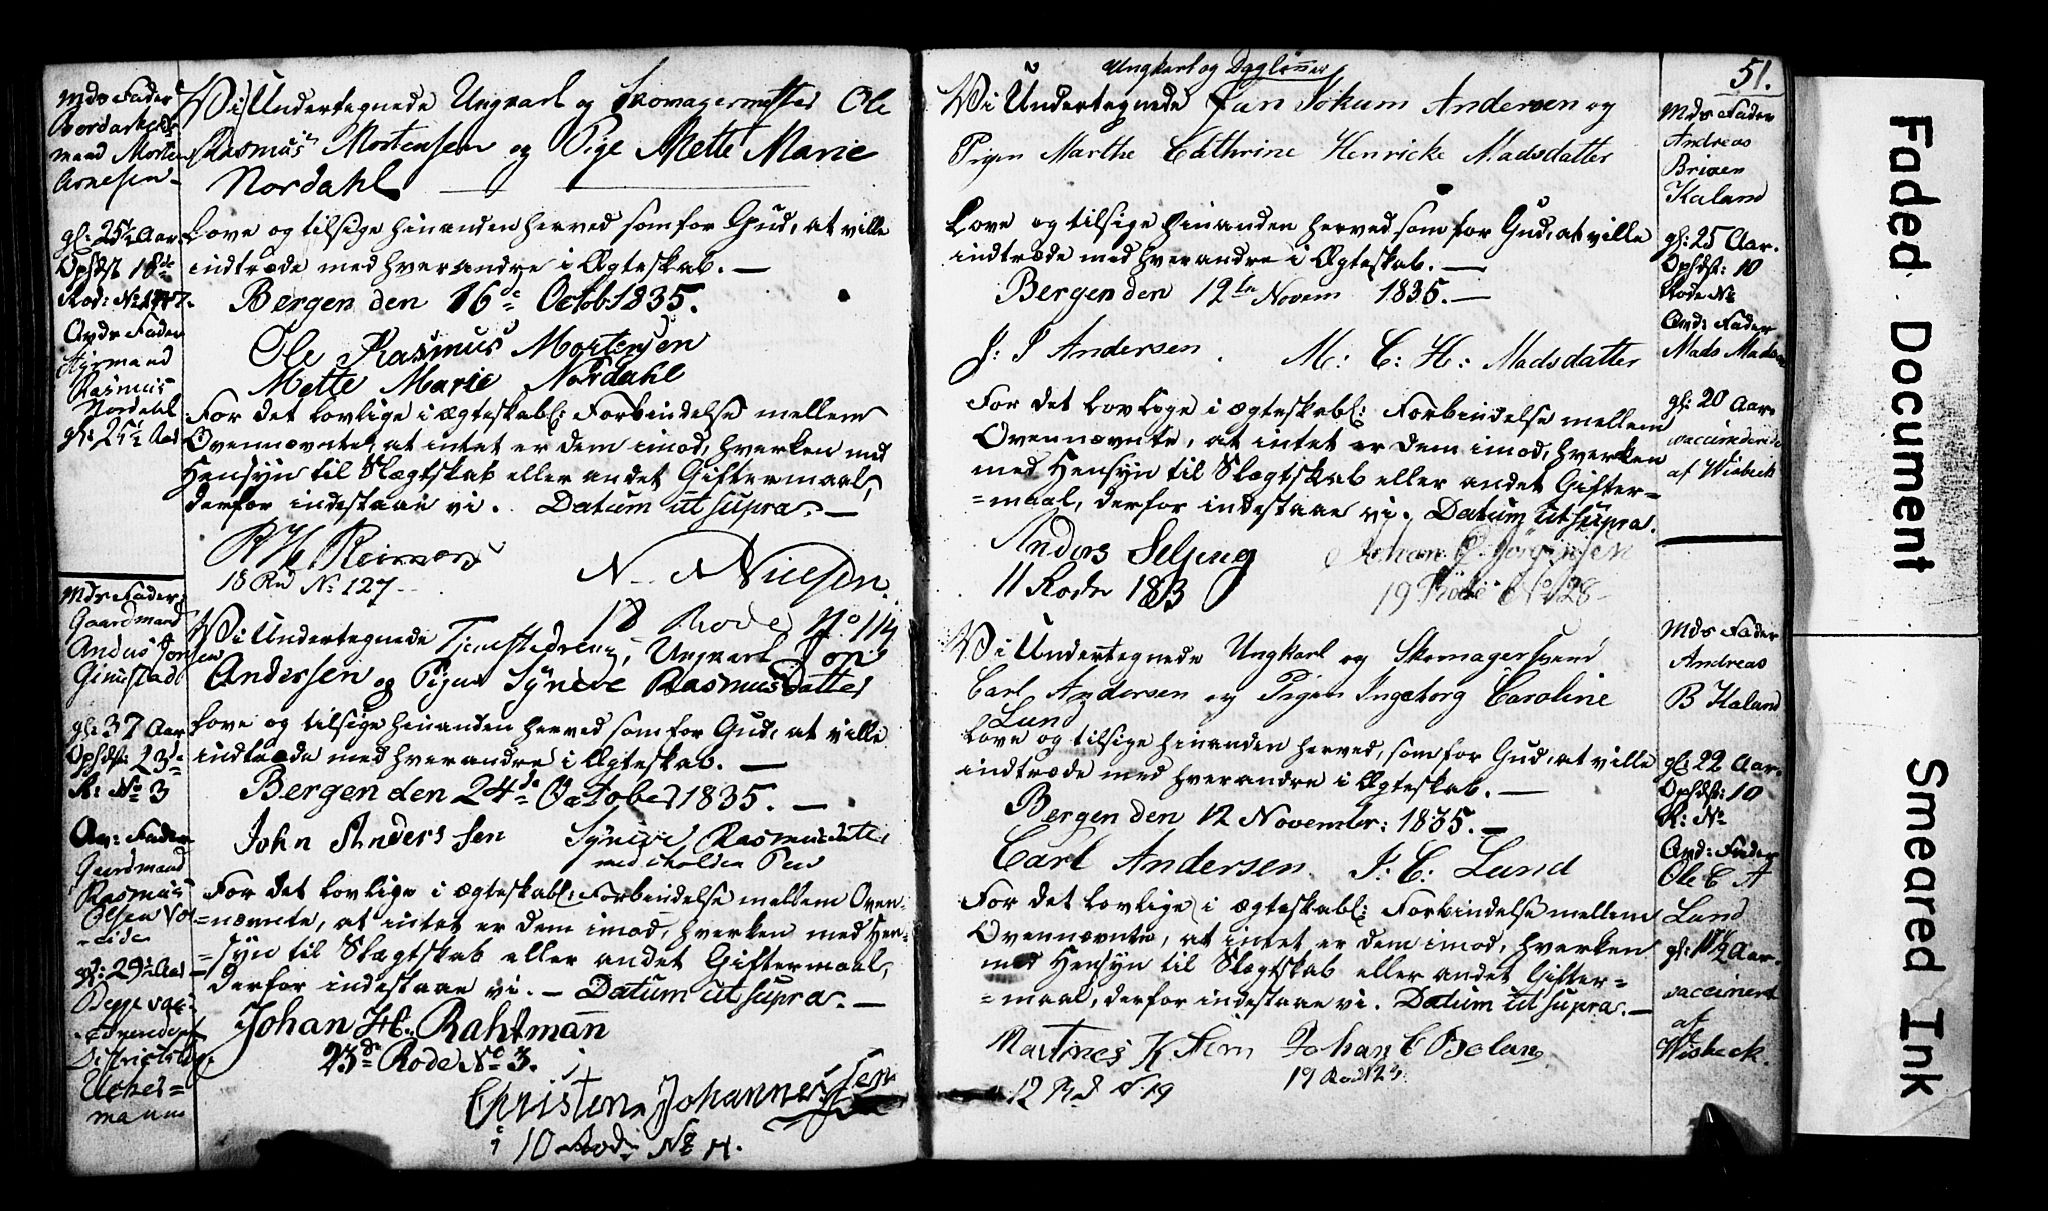 Mds Fader
Bordarbeids
mand Morten
Arnesen
gl: 25½ Aar
Opsdst 18de
Rod: No 147.
Ands Fader
Rasmus
Nordahl
gl: 25½ Aar
Vi Undertegnede Ungkarl og Skomagermester Ole
Rasmus Mortensen og Pige Mette Marie
Nordahl
Love og tilsige hinanden herved som for Gud, at ville
indtræde med hverandre i Ægteskab. —
Bergen den 16de Octob 1835.
Ole Rasmus Mortensen
Mette Marie Nordahl
For det lovlige i ægteskabl: Forbindelse mellem
Ovennævnte, at intet er dem imod, hverken med
Hensyn til Slægtskab eller andet Giftermaal,
derfor indestaae vi. Datum ut supra. —
R H Reimers
18 Rd No 127
N. N Nielsen.
18 Rode No 114
Mds Fader:
Gaardmand
Anders Jonsen
Gimistad
gl: 37 Aar
Opsdst: 23de
R: No 3
An: Fader
Gaardmand
Rasmus
Olsen
gl: 29½ Aar
Begge vac-
Vi Undertegnede Tjenestedreng, Ungkarl Jon
Andersen og Pigen Syneve Rasmusdatter
Love og tilsige hinanden herved som for Gud, at ville
indtræde med hverandre i Ægteskab. —
Bergen den 24de October 1835. —
John Anderssen Syneve Rasmusdatter
med iholden Pen
For det lovlige i ægteskabl: Forbindelse mellem Oven-
=nævnte, at intet er dem imod, hverken med Hen-
=syn til Slægtskab eller andet Giftermaal,
derfor indestaae vi. — Datum ut supra. —
Johan H. Rahtmann
23de Rode No 3.
Christen Johannessen
i 10 Rode No 4.
51.
Ungkarl og Dagleoner
Vi Undertegnede Jan Jokum Andersen og
Pigen Marthe Cathrine Henricke Madsdatter
Love og tilsige hinanden herved som for Gud, at ville
indtræde med hverandre i Ægteskab. —
Bergen den 12te Novem 1835. —
J: J Andersen. M: C: H: Madsdatter
For det lovlige i ægteskabl: Forbindelse mellem
Ovennævnte, at intet er dem imod, hverken
med Hensyn til Slægtskab eller andet Gifter=
=maal, derfor indestaae vi. Datum ut supra.
Anders Seljeng Johan C. Jørgensen
11 Rode 183 19 Rode No 128
Mds Fader
Andreas
Brigen
Kaland
gl: 25 Aar.
Opsdst: 10
Rode No
And: Fader
Mads Madsen
gl: 20 Aar.
vaccinerede
af Wisbeck
Vi Undertegnede Ungkarl og Skomagersvend
Carl Andersen og Pigen Ingeborg Caroline
Lund
Love og tilsige hinanden herved, som for Gud, at ville
indtræde med hverandre i Ægteskab. —
Bergen den 12 November: 1835. —
Carl Andersen. I: C: Lund
For det lovlige i ægteskabl: Forbindelse mellem
Ovennævnte, at intet er dem imod, hverken
med Hensyn til Slægtskab eller andet Gifter=
=maal, derfor indestaae vi. Datum ut supra. —
Martines K Johan C
12 Rd No 19
Mds Fader
Andreas
B Kaland
gl: 22 Aar.
Opsdst: 10
R: No
And: Fader
Ole C A
Lund
vaccinert
af
Wisbeck.
Faded Document
Smeared Ink